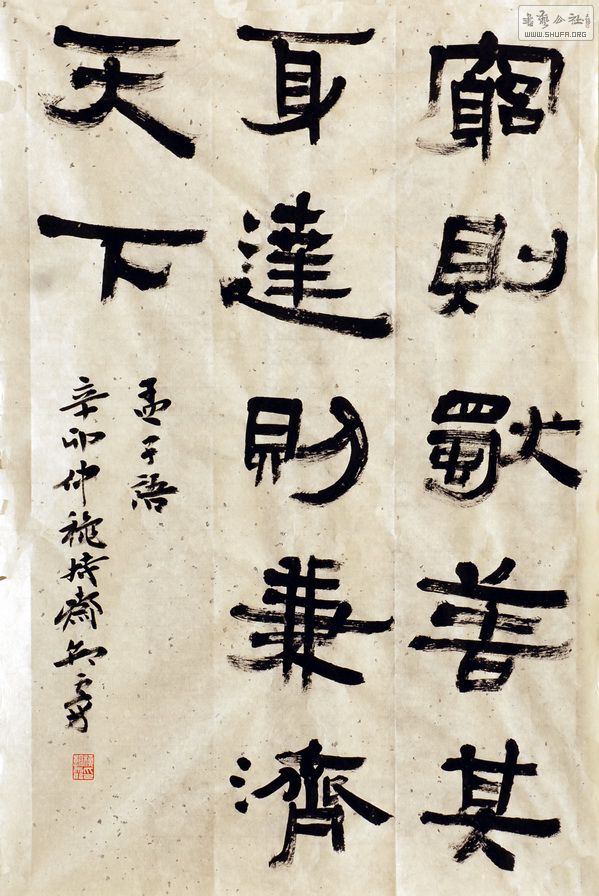 書藝公社
WWW.SHUFA.ORG
窮則獨善其
身達則兼濟
天下
孟子語
辛卯仲龝持齋